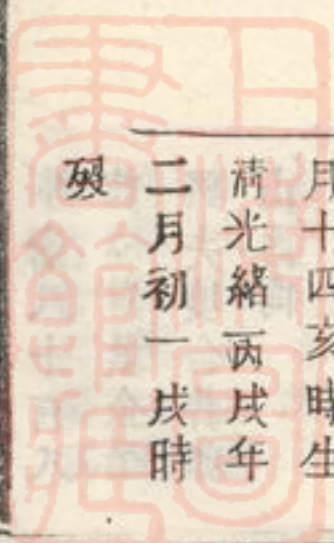 月十四亥時生
清光緒丙戌年
二月初一戌時
殁